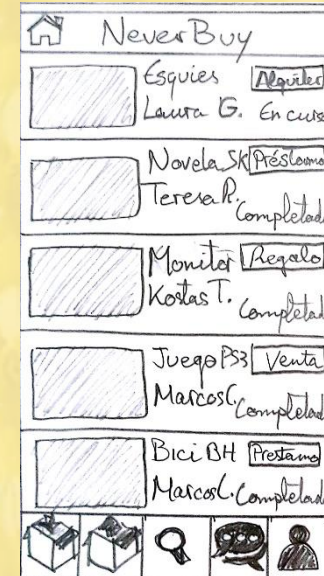 NeverBuy
Esquies Alquiler
Laura G. En curs
Novela SK Préstamo
Teresa R.
Completad
Monitor Regalo
Kostas T.
Completad
Juego PS3 Venta
Marcos C. Completad
Bici BH Prestamo
Marcos C. Completad